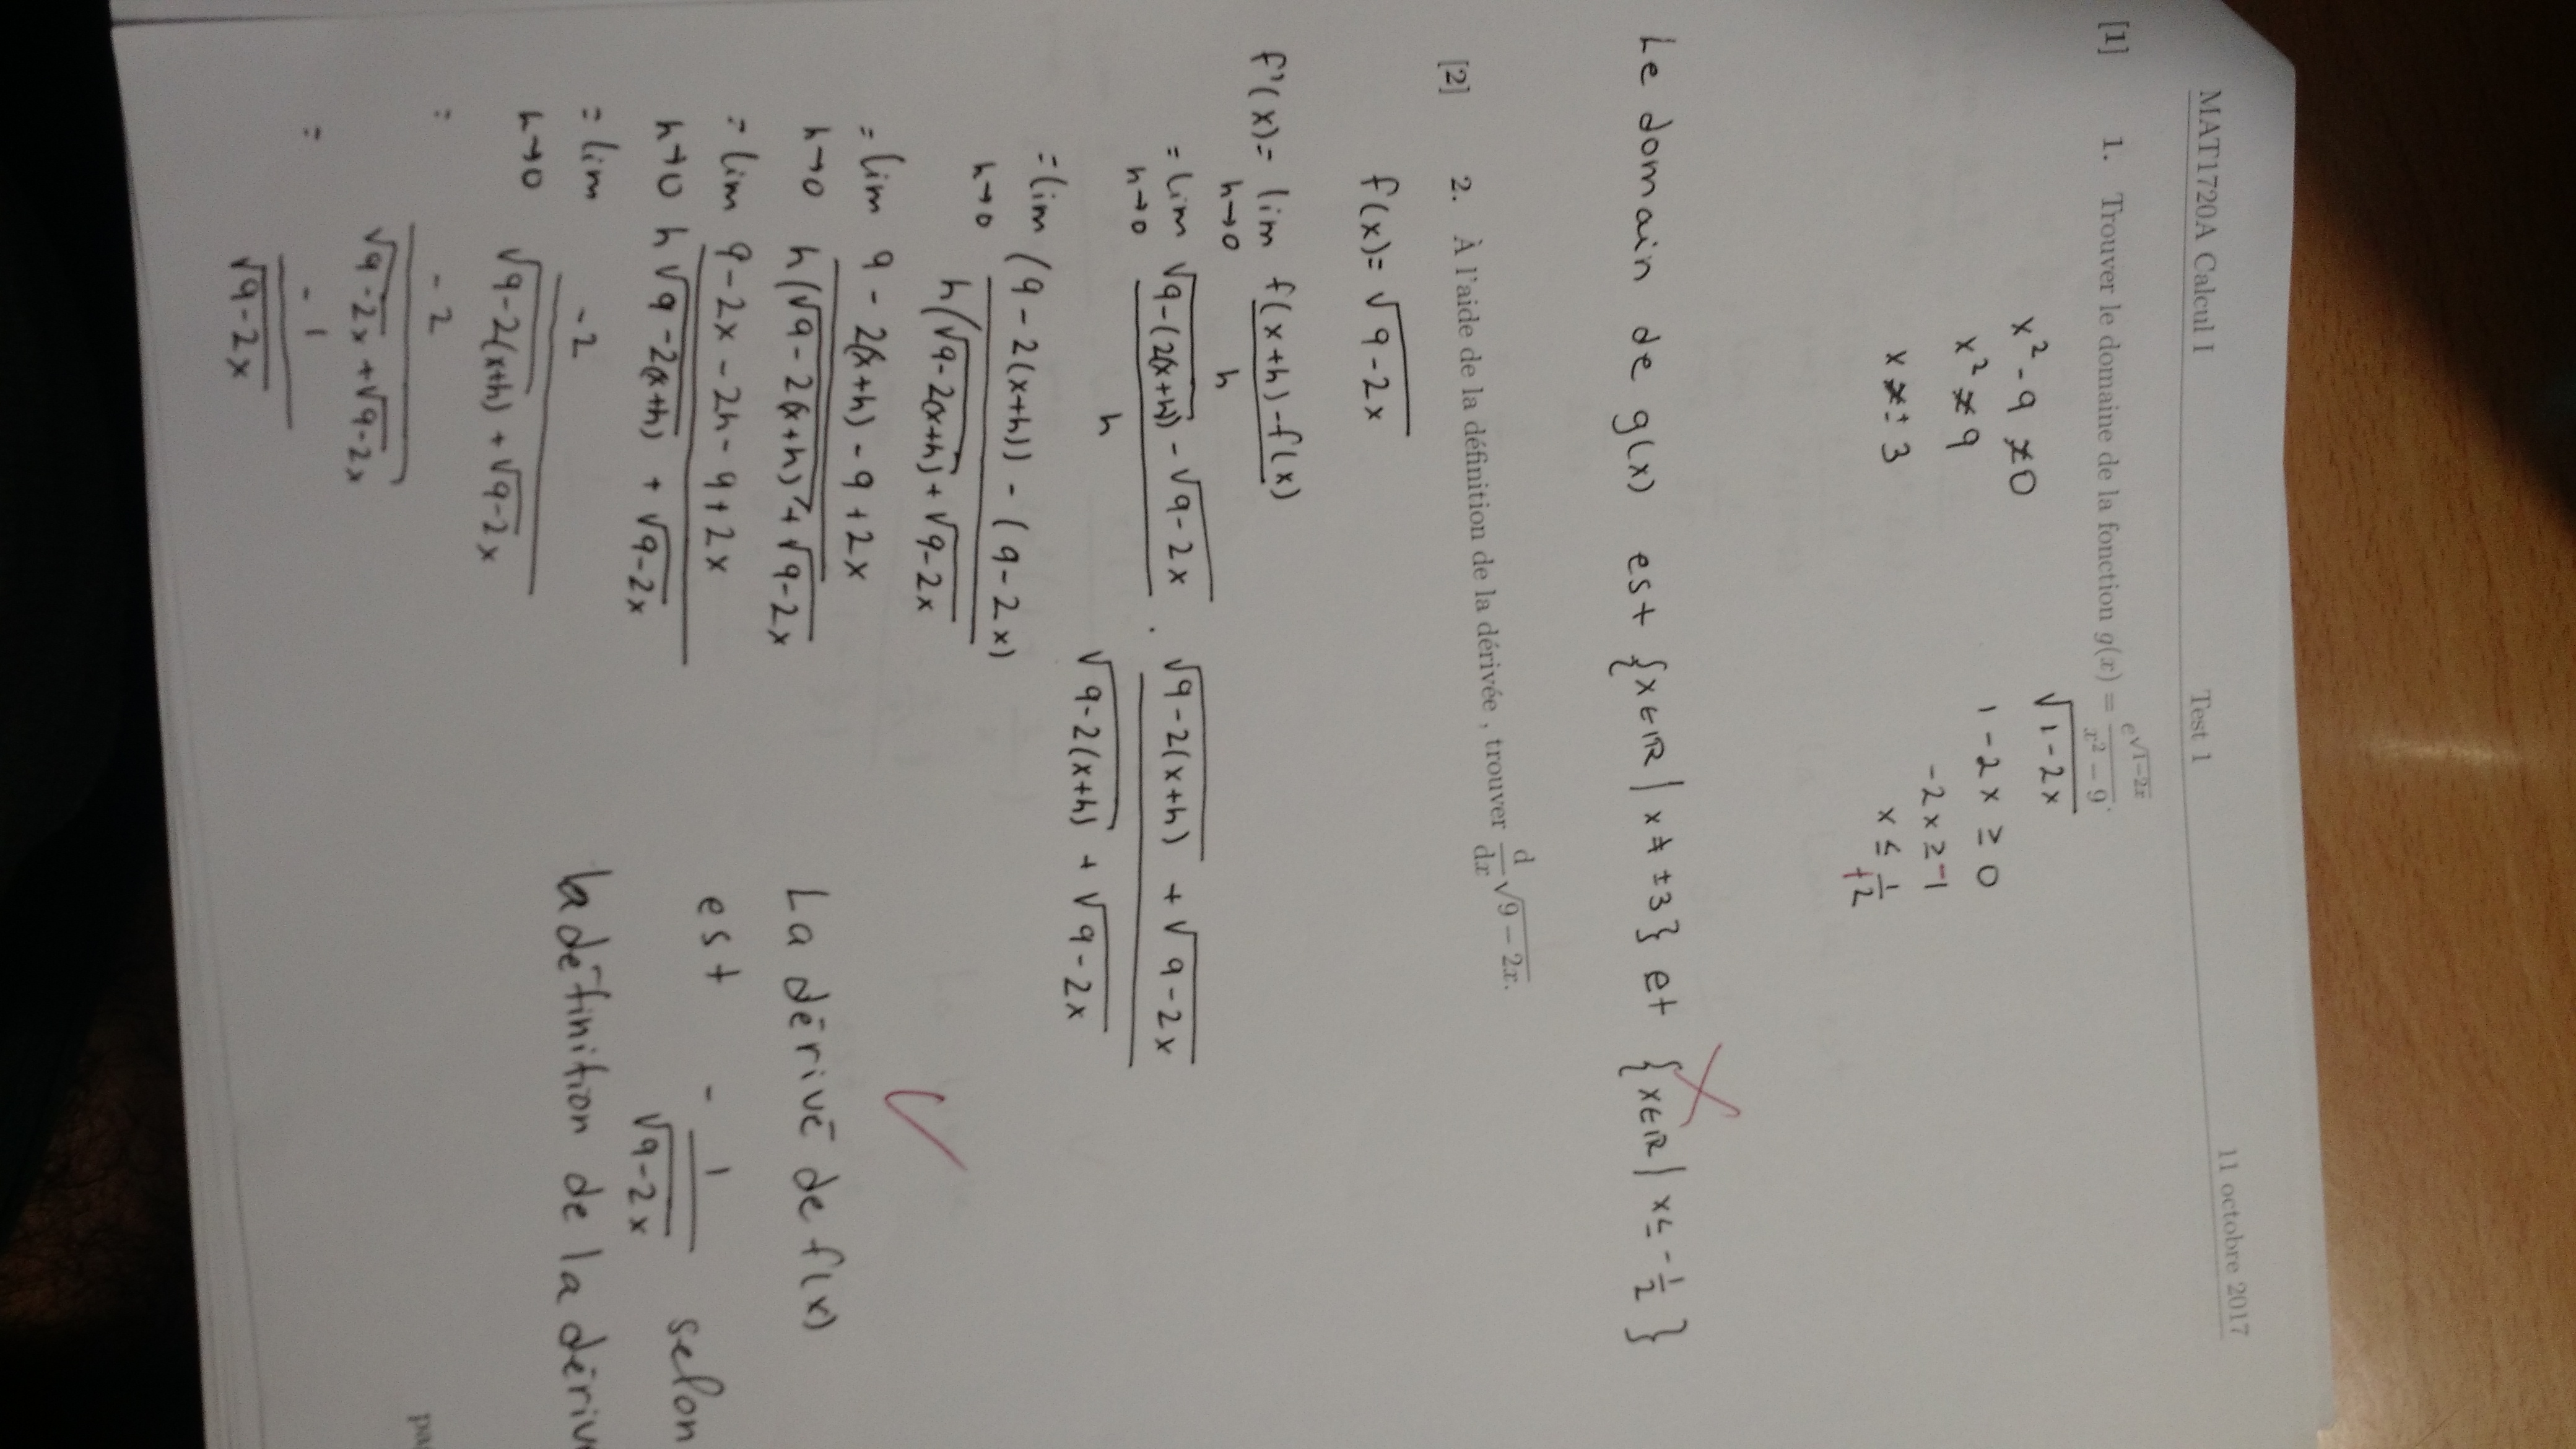 MAT1720A Calcul I Test 1 11 octobre 2017
[1] 1. Trouver le domaine de la fonction g(x) = e^√(1−2x) / (x² − 9).
x² - 9 ≠ 0 √(1-2x)
x² ≠ 9 1 - 2x ≥ 0
x ≠ ± 3 -2x ≥ -1
x ≤ +1/2
Le domain de g(x) est {x∈ℝ | x ≠ ±3} et {x∈ℝ | x ≤ -1/2}
[2] 2. À l'aide de la définition de la dérivée , trouver d/dx √(9 − 2x).
f(x) = √(9-2x)
f'(x) = lim h→0 (f(x+h) - f(x)) / h
= lim h→0 (√(9-(2(x+h)) - √(9-2x)) / h · (√(9-2(x+h) + √(9-2x)) / (√(9-2(x+h) + √(9-2x))
= lim h→0 ((9-2(x+h)) - (9-2x)) / h(√(9-2(x+h) + √(9-2x)
= lim h→0 (9 - 2(x+h) - 9 + 2x) / h(√(9-2(x+h) + √(9-2x)
= lim h→0 (9-2x-2h-9+2x) / h√(9-2(x+h) + √(9-2x)
= lim h→0 -2 / (√(9-2(x+h) + √(9-2x))
= -2 / (√(9-2x) + √(9-2x))
= -1 / √(9-2x)
La dérivé de f(x)
est - 1/√(9-2x) selon
la définition de la dériv